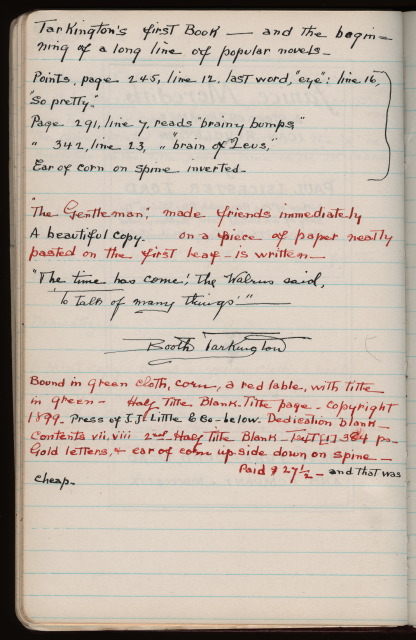 Tarkington's first Book — and the begin=
ning of a long line of popular novels—
Points, page 245, line 12, last word, "eye": line 16,
"So pretty."
Page 291, line 7, reads "brainy bumps,"
" 342, line 23, " "brain of Zeus,"
Ear of corn on spine inverted—
"The Gentleman", made friends immediately
A beautiful copy. on a piece of paper neatly
pasted on the first leaf - is written—
"The time has come', the Walrus said,
'to talk of many things'"—
Booth Tarkington
Bound in green cloth, corn, a red lable, with title
in green— Half Title Blank. Title page - Copyright
1899. Press of J.J. Little & Co - below. Dedication blank—
Contents vii. viii 2nd Half Title Blank - Text [1] 384 pa—
Gold letters, & ear of corn up side down on spine—
Paid $ 27½ — and that was
cheap-